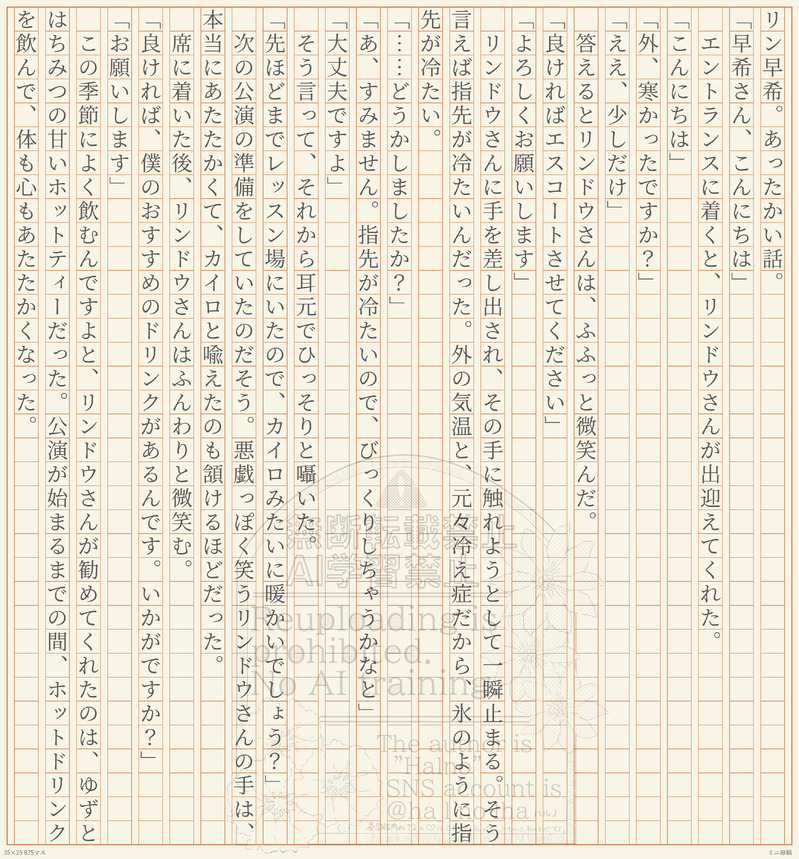 リン早希。あったかい話。
「早希さん、こんにちは」
エントランスに着くと、リンドウさんが出迎えてくれた。
「こんにちは」
「外、寒かったですか？」
「ええ、少しだけ」
答えるとリンドウさんは、ふふっと微笑んだ。
「良ければエスコートさせてください」
「よろしくお願いします」
リンドウさんに手を差し出され、その手に触れようとして一瞬止まる。そう
言えば指先が冷たいんだった。外の気温と、元々冷え症だから、氷のように指
先が冷たい。
「……どうかしましたか？」
「あ、すみません。指先が冷たいので、びっくりしちゃうかなと」
「大丈夫ですよ」
そう言って、それから耳元でひっそりと囁いた。
「先ほどまでレッスン場にいたので、カイロみたいに暖かいでしょう？」
次の公演の準備をしていたのだそう。悪戯っぽく笑うリンドウさんの手は、
本当にあたたかくて、カイロと喩えたのも頷けるほどだった。
席に着いた後、リンドウさんはふんわりと微笑む。
「良ければ、僕のおすすめのドリンクがあるんです。いかがですか？」
「お願いします」
この季節によく飲むんですよと、リンドウさんが勧めてくれたのは、ゆずと
はちみつの甘いホットティーだった。公演が始まるまでの間、ホットドリンク
を飲んで、体も心もあたたかくなった。
無断転載禁止
AI学習禁止
Reuploading is
prohibited.
No AI training.
The author is
"Halno"
SNS account is
@ha1no_ha
35×25 875マス
ミニ原稿